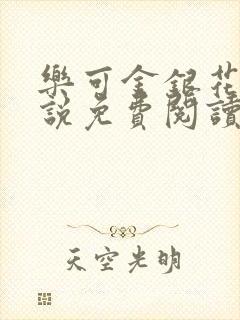 樂可金銀花
說免費閱讀
天空光明